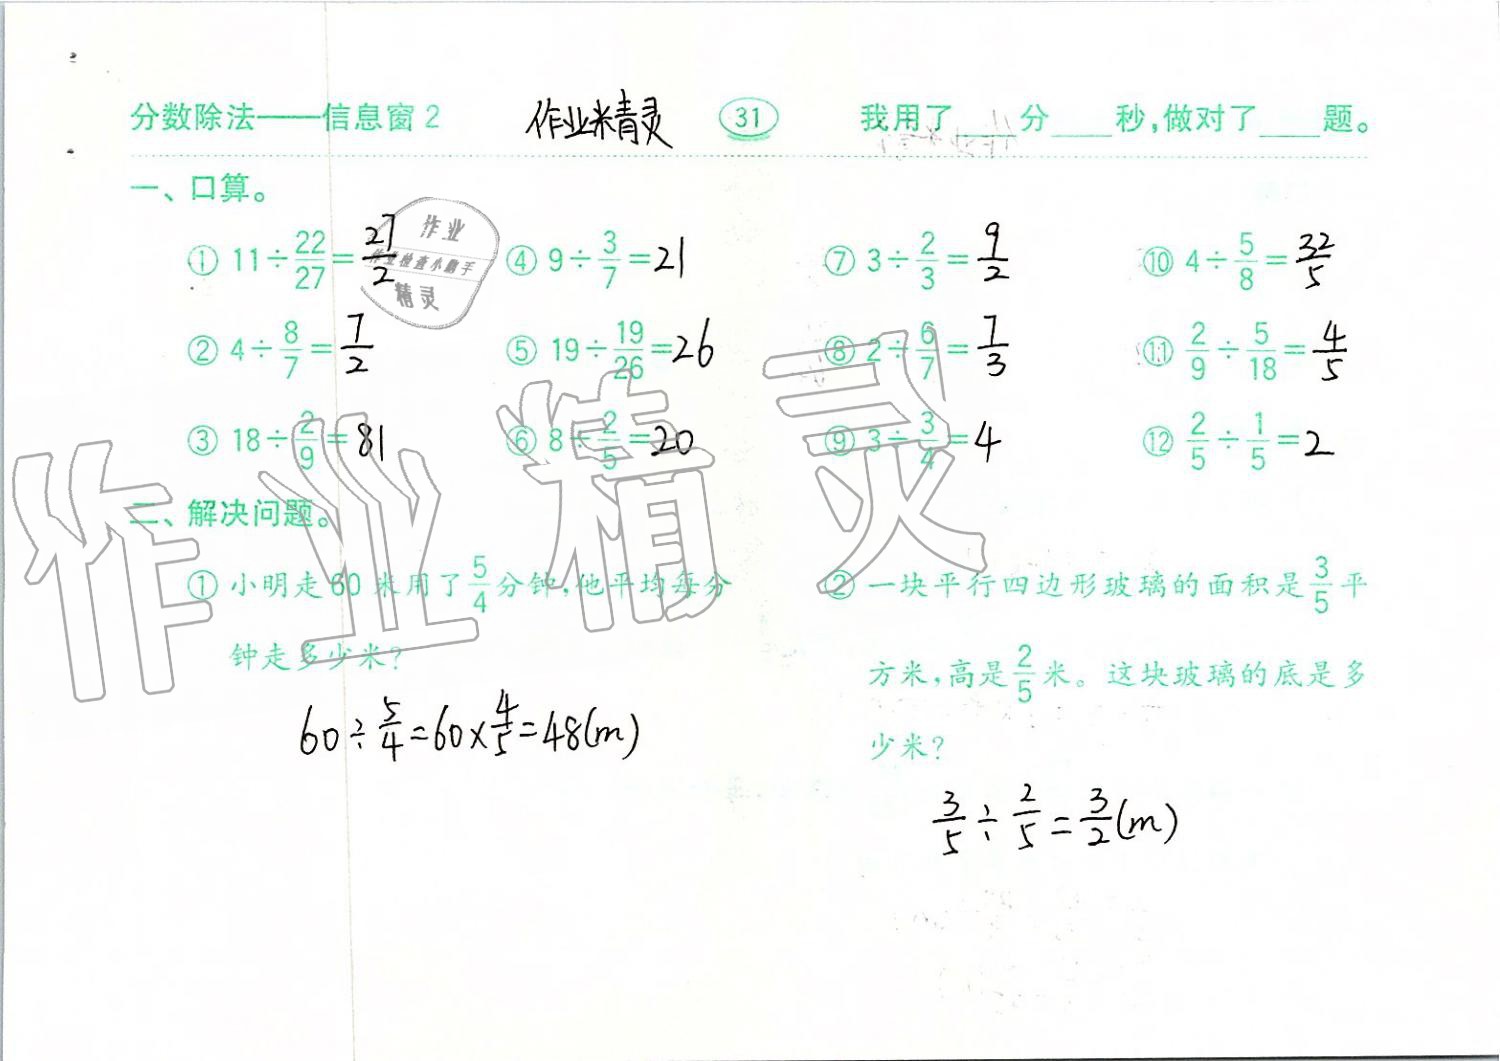 分数除法——信息窗2 作业精灵 31 我用了____分____秒,做对了____题。
一、口算。
作业
作业检查小助手
精灵
① 11÷22/27=27/2 ④ 9÷3/7=21 ⑦ 3÷2/3=9/2 ⑩ 4÷5/8=32/5
② 4÷8/7=7/2 ⑤ 19÷19/26=26 ⑧ 2÷6/7=7/3 ⑪ 2/9÷5/18=4/5
③ 18÷2/9=81 ⑥ 8÷2/5=20 ⑨ 3÷3/4=4 ⑫ 2/5÷1/5=2
作业精灵
二、解决问题。
① 小明走60米用了5/4分钟,他平均每分
钟走多少米?
60÷5/4=60×4/5=48(m)
② 一块平行四边形玻璃的面积是3/5平
方米,高是2/5米。这块玻璃的底是多
少米?
3/5÷2/5=3/2(m)